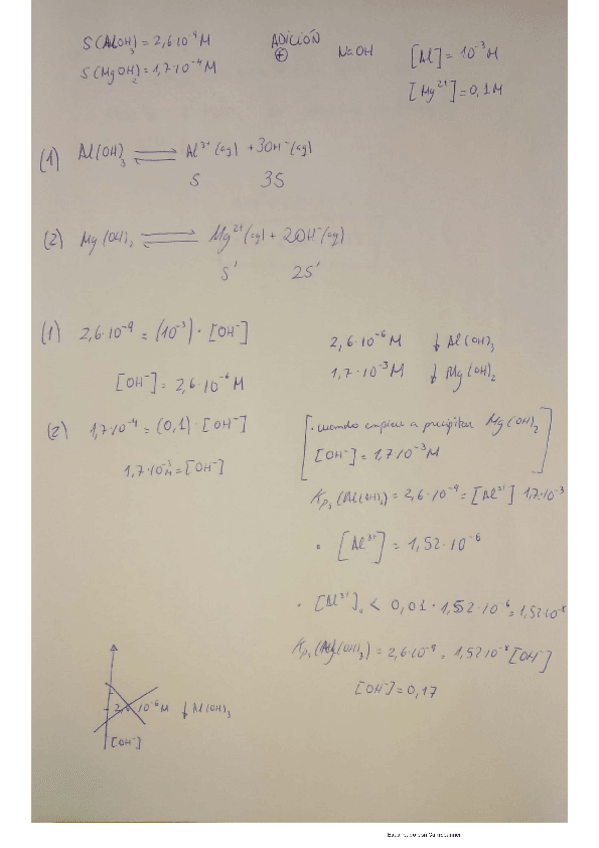 S(Al(OH)₃) = 2,6·10⁻⁹ M
S(Mg(OH)₂) = 1,7·10⁻⁴ M
ADICIÓN
⊕ NaOH
[Al] = 10⁻³ M
[Mg²⁺] = 0,1 M
(1) Al(OH)₃ ⇌ Al³⁺(aq) + 3OH⁻(aq)
S 3S
(2) Mg(OH)₂ ⇌ Mg²⁺(aq) + 2OH⁻(aq)
S' 2S'
(1) 2,6·10⁻⁹ = (10⁻³)·[OH⁻]
[OH⁻] = 2,6·10⁻⁶ M
(2) 1,7·10⁻⁴ = (0,1)·[OH⁻]
1,7·10⁻³ M = [OH⁻]
2,6·10⁻⁶ M ↓ Al(OH)₃
1,7·10⁻³ M ↓ Mg(OH)₂
· cuando empieza a precipitar Mg(OH)₂
[OH⁻] = 1,7·10⁻³ M
Kps (Al(OH)₃) = 2,6·10⁻⁹ = [Al³⁺] 1,7·10⁻³
· [Al³⁺] = 1,52·10⁻⁶
· [Al³⁺]₀ < 0,01 · 1,52·10⁻⁶ = 1,52·10⁻⁸
Kps (Al(OH)₃) = 2,6·10⁻⁹ = 1,52·10⁻⁸ [OH⁻]
[OH⁻] = 0,17
2,6·10⁻⁶ M ↓ Al(OH)₃
[OH⁻]